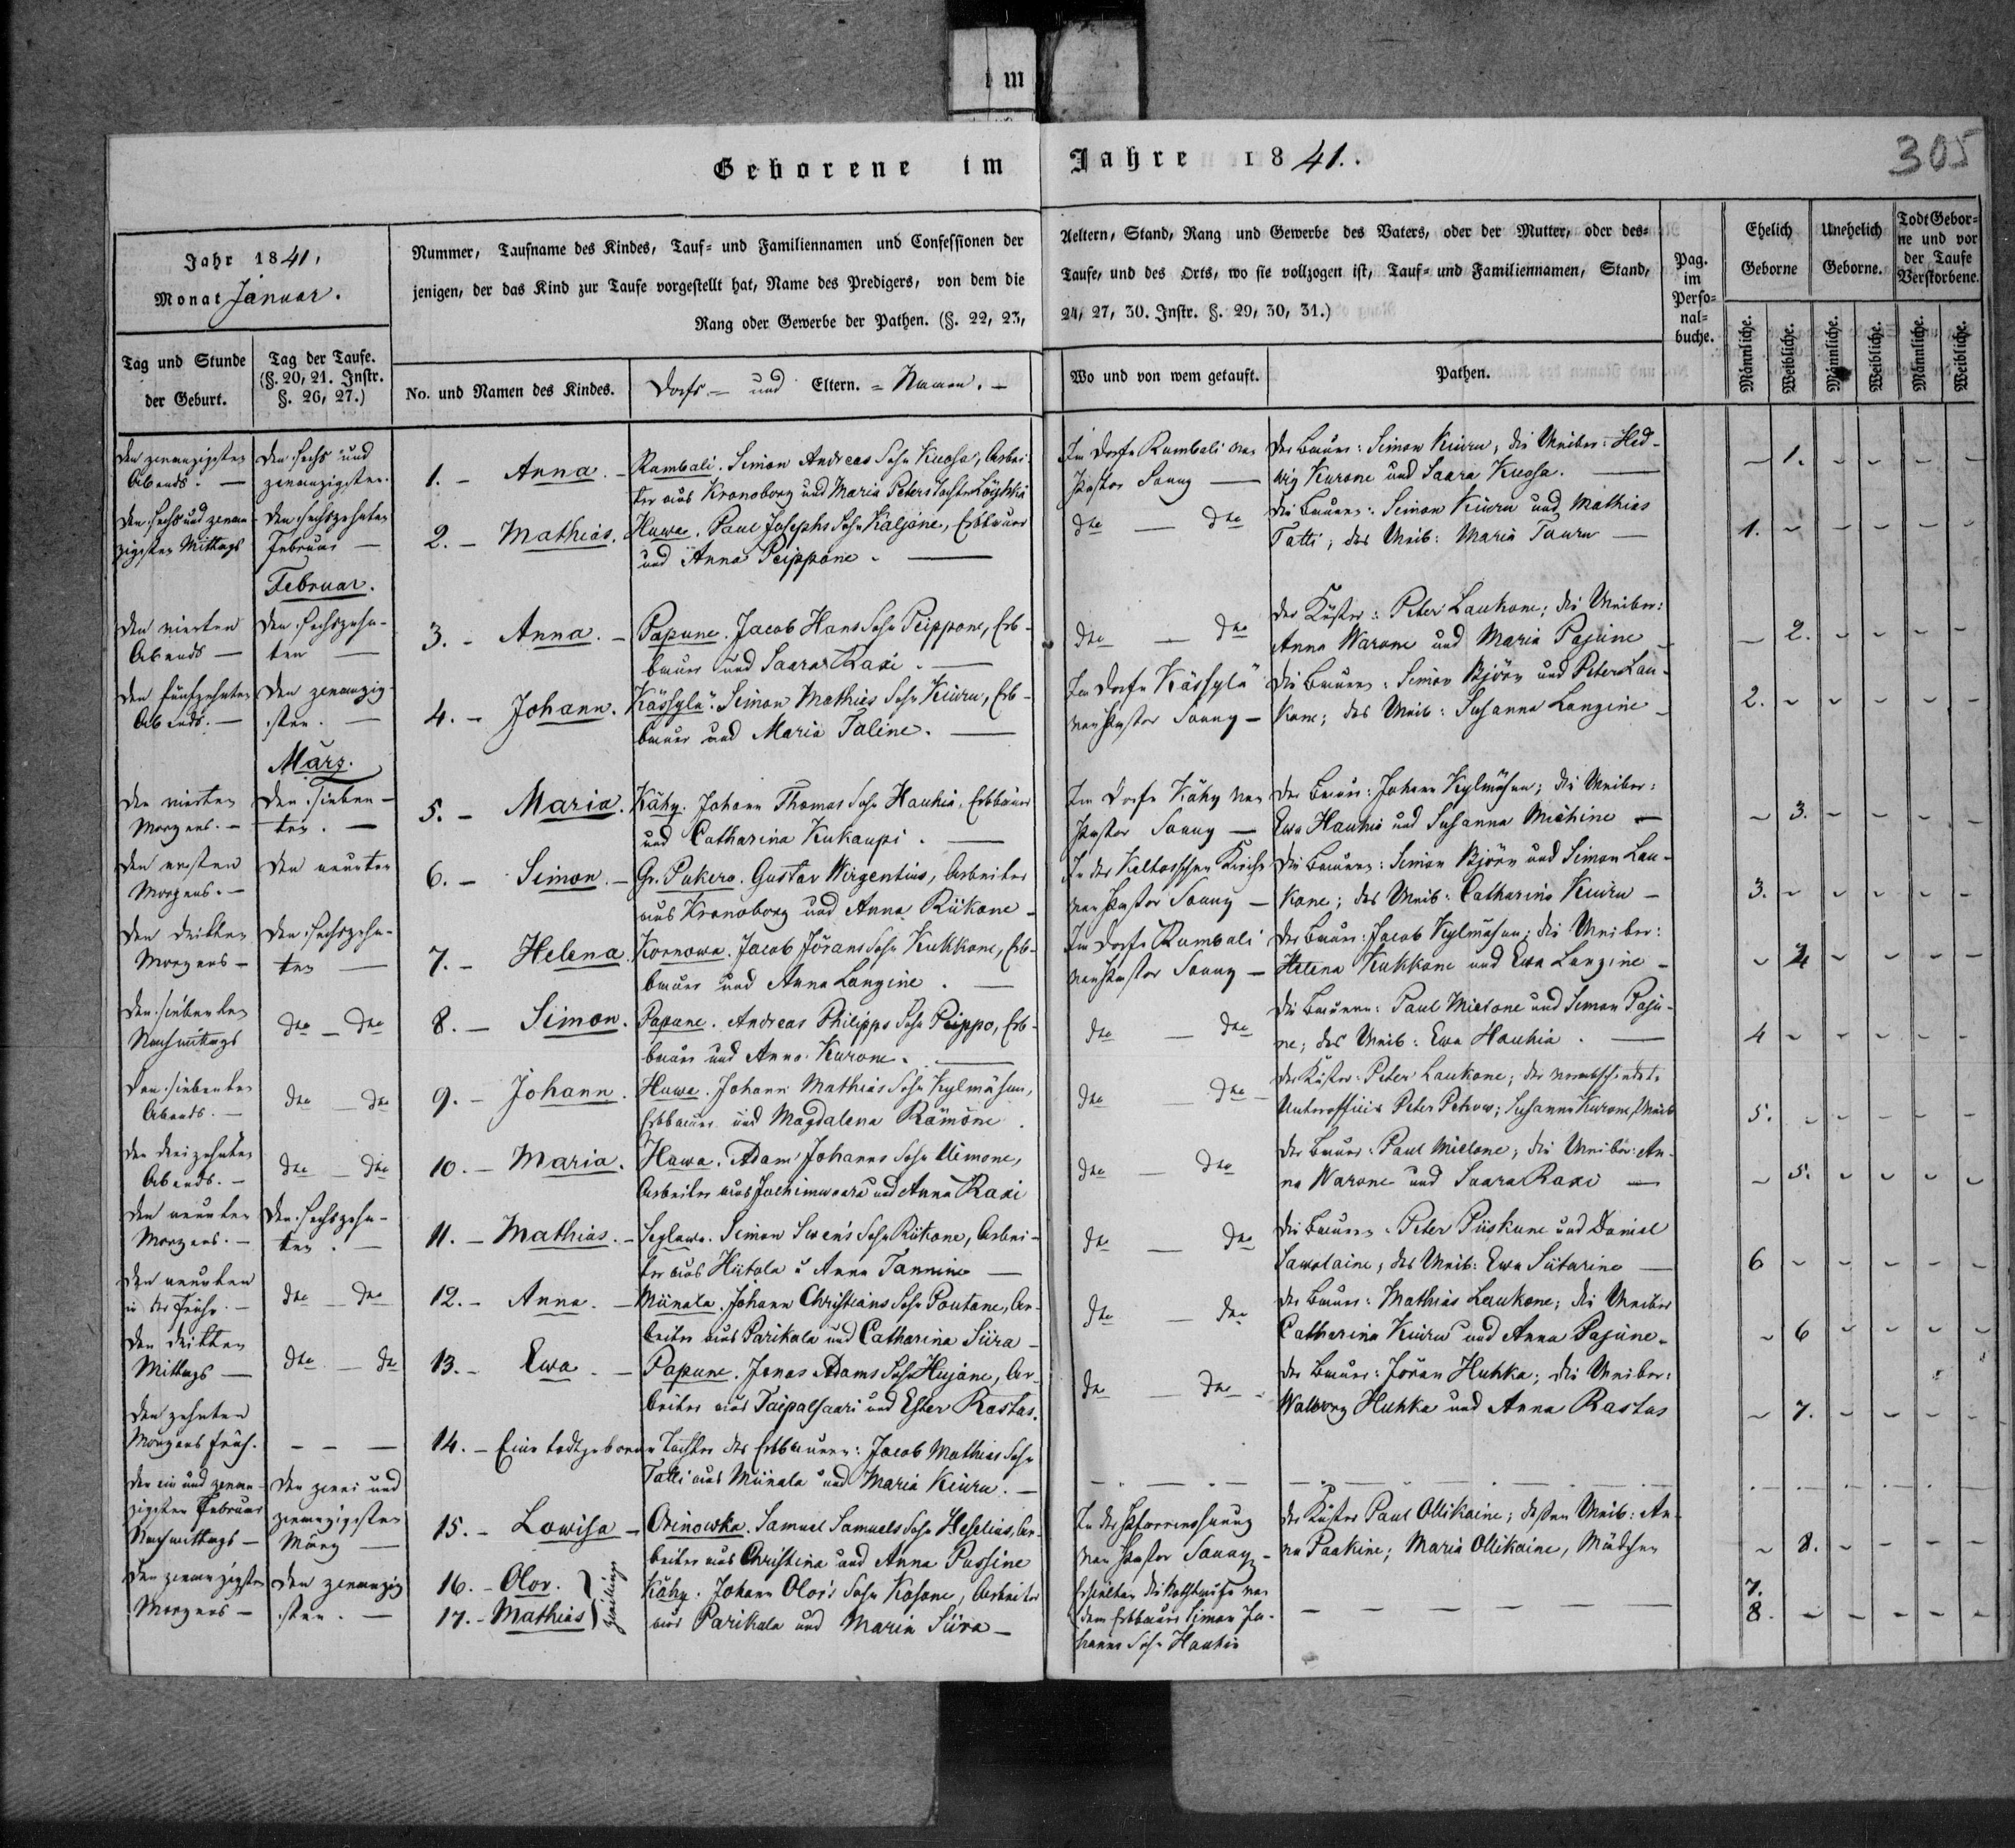 i m
Geborene im Jahre 1841.
305
Jahr 1841,
Monat Januar.
Nummer, Taufname des Kindes, Tauf- und Familiennamen und Confessionen der
jenigen, der das Kind zur Taufe vorgestellt hat, Name des Predigers, von dem die
Rang oder Gewerbe der Pathen. (§. 22, 23,
Aeltern, Stand, Rang und Gewerbe des Vaters, oder der Mutter, oder des-
Taufe, und des Orts, wo sie vollzogen ist, Tauf- und Familiennamen, Stand,
24, 27, 30. Instr. §. 29, 30, 31.)
Pag.
im
Perso-
nal-
buche.
Ehelich
Geborne
Unehelich
Geborne.
Todt Gebor-
ne und vor
der Taufe
Verstorbene.
Männliche.
Weibliche.
Männliche.
Weibliche.
Männliche.
Weibliche.
Tag und Stunde
der Geburt.
Tag der Taufe.
(§. 20, 21. Instr.
§. 26, 27.)
No. und Namen des Kindes.
Dorfs- und Eltern-Namen.
Wo und von wem getauft.
Pathen.
Den zwanzigsten
Abends. —
Den sechs und
zwanzigsten.
1. - Anna. -
Rambali. Simon Andreas Sohn Kuosa, Arbei-
ter aus Kronoborg und Maria Peters Tochter
Im Dorfe Rambali von
Pastor
Der Bauer: Simon Kiuru; die Weiber: Hed-
wig Kurone und Saara Kuosa. —
1.
Den sechs und zwan-
zigsten Mittags
Den sechszehnten
Februar —
2. - Mathias.
Hawa. Paul Josephs Sohn Kaljane, Erbbauer
und Anna Peippone. —
dto — dto
Die Bauern: Simon Kiuru und Mathias
Tatti; das Weib: Maria Tauru —
1.
Februar.
Den vierten
Abends —
Den sechszehn-
ten —
3. - Anna. -
Papune. Jacob Hans Sohn Peippone, Erb-
bauer und Saara Raxi. —
dto — dto
Der Küster: Peter Laukone; die Weiber:
Anna Warone und Maria Pajune —
2.
Den fünfzehnten
Abends. —
Den zwanzig-
sten. —
4. - Johann.
Kässylä. Simon Mathias Sohn Kiuru, Erb-
bauer und Maria Taline. —
Im Dorfe Kässylä
von Pastor
Die Bauern: Simon Björn und Peter Lau-
kone; das Weib: Susanna Langine —
2.
März.
Den vierten
Morgens. —
Den sieben-
ten. —
5. - Maria.
Kähy. Johann Thomas Sohn Hauhia, Erbbauer
und Catharina Kukaupi. —
Im Dorfe Kähy von
Pastor
Der Bauer: Johann Kylmäsuu; die Weiber:
Ewa Hauhia und Susanna Michine —
3.
Den ersten
Morgens. —
Den neunten
6. - Simon. -
Gr. Pukero. Gustav Wirgentius, Arbeiter
aus Kronoborg und Anna Rükone —
In der Keltoschen Kirche
von Pastor
Die Bauern: Simon Björn und Simon Lau-
kone; das Weib: Catharina Kiuru —
3.
Den dritten
Morgens —
Den sechszehn-
ten —
7. - Helena.
Kornowa. Jacob Jörans Sohn Kukkone, Erb-
bauer und Anna Langine. —
Im Dorfe Rambali
von Pastor
Der Bauer: Jacob Kylmäsuu; die Weiber:
Helena Kukkone und Ewa Langine —
4
Den siebenten
Nachmittags
dto — dto
8. - Simon.
Papune. Andreas Philipps Sohn Peippo, Erb-
bauer und Anna Kurone. —
dto — dto
Die Bauern: Paul Mielone und Simon Paju-
ne; das Weib: Ewa Hauhia. —
4
Den siebenten
Abends. —
dto — dto
9. - Johann.
Hawa. Johann Mathias Sohn Kylmäsuu,
Erbbauer und Magdalena Rämöne.
dto — dto
Der Küster: Peter Laukone; der verabschiedete
Unterofficir Peter Petrow; Susanna Kurone, Weib
5.
Den dreizehnten
Abends. —
dto — dto
10. - Maria.
Hawa. Adam Johanns Sohn Mimone,
Arbeiter aus Jochimwaara und Anna Raxi
dto — dto
Der Bauer: Paul Mielone; die Weiber: An-
na Warone und Saara Raxi —
5.
Den neunten
Morgens. —
Den sechszehn-
ten. —
11. - Mathias. -
Seglawa. Simon Swens Sohn Rükone, Arbei-
ter aus Hiitola u. Anna Tannine —
dto — dto
Die Bauern: Peter Püskune und Daniel
Sawolaine; das Weib: Ewa Sütarine —
6
Den neunten
in der Frühe. —
dto — dto
12. - Anna. -
Miinala. Johann Christians Sohn Poutane, Ar-
beiter aus Parikala und Catharina Siira —
dto — dto
Der Bauer: Mathias Laukone; die Weiber
Catharina Kiuru und Anna Pajune —
6
Den dritten
Mittags —
dto — dto
13. - Ewa. -
Papune. Jonas Adams Sohn Hujane, Ar-
beiter aus Taipalsaari und Ester Rastas.
dto — dto
Der Bauer: Jöran Huhka; die Weiber:
Walborg Huhka und Anna Rastas
7.
Den zehnten
Morgens früh.
— — —
14. - Eine todtgeborene Tochter des Erbbauern: Jacob Mathias Sohn
Tatti aus Miinala und Maria Kiuru. —
Den ein und zwan-
zigsten Februar
Nachmittags —
Den zwei und
zwanzigsten
März —
15. - Lowisa -
Orinowka. Samuel Samuels Sohn Heselius, Ar-
beiter aus Christina und Anna Pussine
In der Pfarrwohnung
von Pastor
Der Küster Paul Ollikaine; dessen Weib: An-
na Paakine; Maria Ollikaine, Mädchen
8.
Den zwanzigsten
Morgens —
Den zwanzig-
sten. —
16. - Olov.
17. - Mathias
Zwillinge
Kähy. Johann Olov's Sohn Kosone, Arbeiter
aus Parikala und Maria Siira —
Erhielten die Nothtaufe von
dem Erbbauer Simon Jo-
hanns Sohn Hauhia
7.
8.